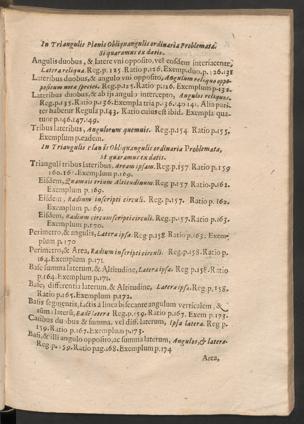 In Triangulis Planis Obliquangulis ordinaria Problemata.
Si quaramus ex datis.
Angulis duobus, & latere vni opposito, vel eisdem interiacente,
Latera reliqua. Reg.p.125 Ratio p.126. Exemp. duo. p.126.138
Lateribus duobus, & angulo vni opposito, Angulum reliquis oppo-
positum nota speciei. Reg.p.125. Ratio p.126. Exemplum p.132.
Lateribus duobus, & ab ijs angulo intercepto, Angulos reliquos.
Reg.p.135. Ratio p.136. Exempla tria p. 136.140.141. Aliu pari-
ter habetur Regula p.143. Ratio cuius est ibid. Exempla qua-
tuor p.146.147.149.
Tribus lateribus, Angulorum quemuis. Reg.p.154. Ratio p.155,
Exemplum p. eadem.
In Triangulis planis Obliquangulis ordinaria Problemata,
ut quaramus ex datis.
Trianguli tribus lateribus. Aream ipsam. Reg.p.157 Ratio p.159
160.161. Exemplum p.169.
Eisdem, Quamuis trium Altitudinum. Reg.p.157 Ratio p.162.
Exemplum p.169.
Eisdem, Radium circuli. Reg.p.157. Ratio p.162.
Exemplum p. 69.
Eisdem, Radium circumscripti circuli. Reg.p.157. Ratio p.163.
Exemplum p.170.
Perimetro, & angulis, Latera ipsa. Reg.p.158 Ratio p.163. Exem-
plum p.170
Perimetro, & Area, Radium inscripti circuli. Reg.p.158. Ratio p.
164. Exemplum p.171.
Base summa laterum, & Altitudine, Latera ipsa. Reg p.158. Ratio
p.164. Exemplum p.171.
Base, differentia laterum, & Altitudine, Latera ipsa. Reg.p.158.
Ratio p.165. Exemplum p.172.
Basis segmentis, factis à linea bisecante angulum verticalem, &
summa laterum, Base latera Reg.p.159. Ratio p.167. Exem p.173.
Casibus duobus & summa, vel diff. laterum, ipsa latera. Reg p.
159. Ratio p.167. Exemplum p.173.
Basi, & illi angulo opposito, ac summa laterum, Angulos, & latera.
Reg.p.159. Ratio pag.168. Exemplum p.174
Area,